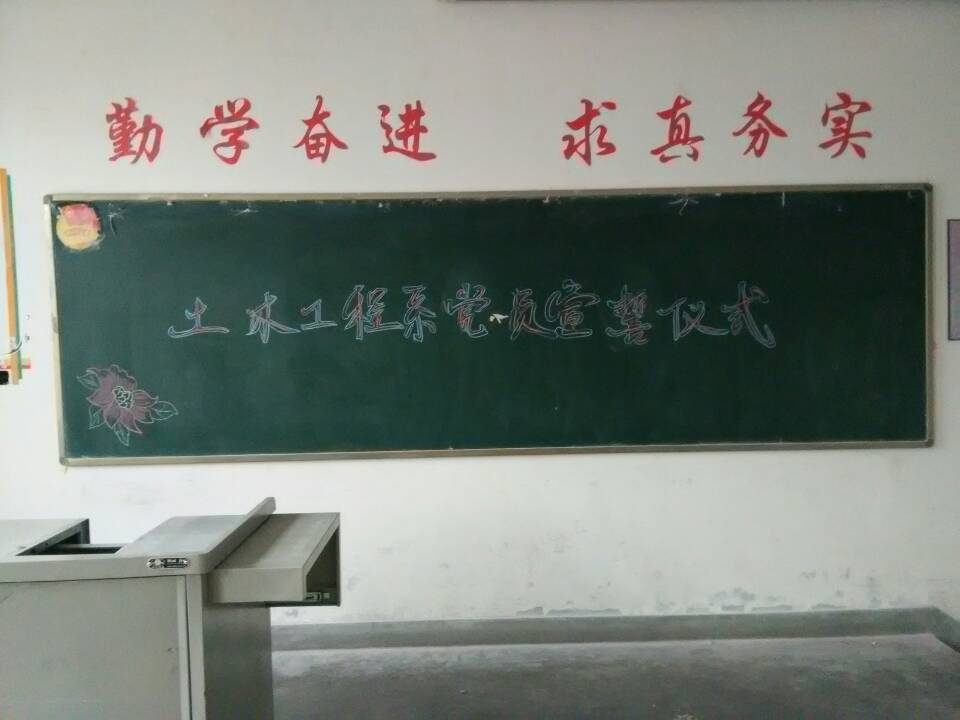 勤学奋进 求真务实
土木工程系党员宣誓仪式